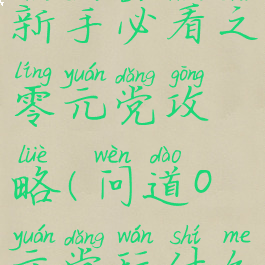 新手必看之
líng yuán dǎng gōng
零元党攻
lüè wèn dào
略(问道0
yuán dǎng wán shí me
元党玩什么